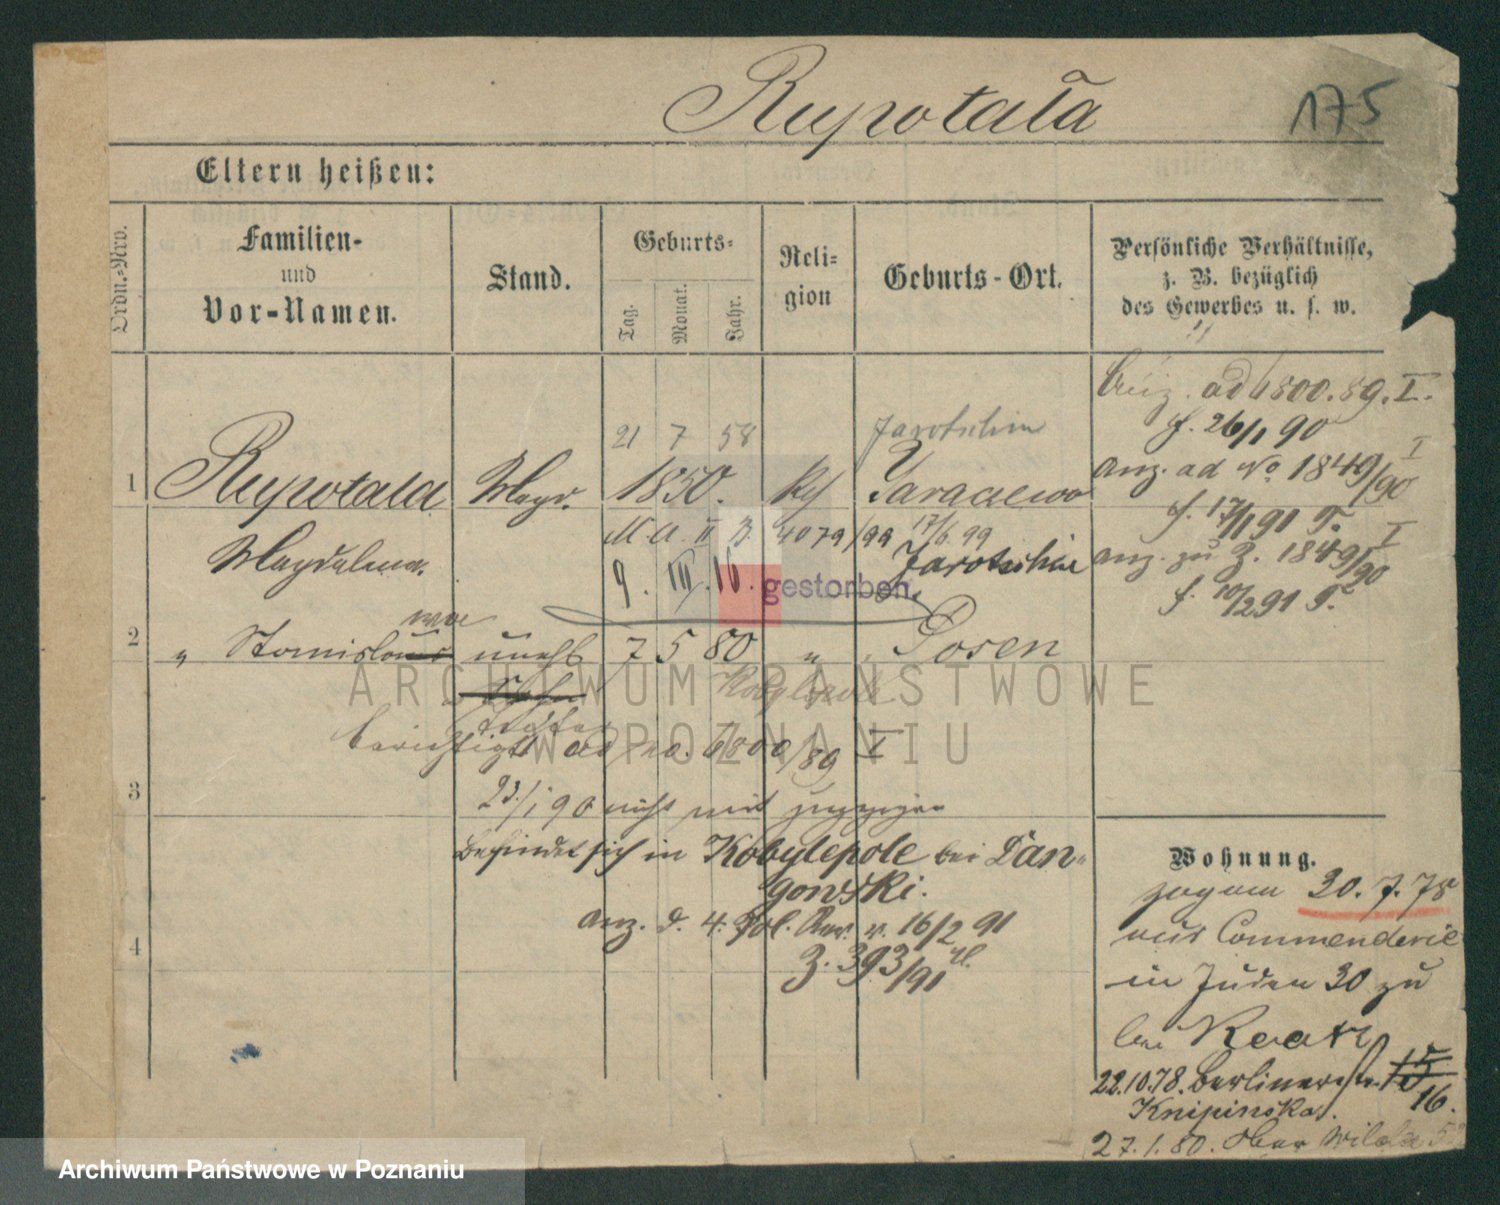 Rupotała
175
Eltern heißen:
Ordn.-Nro.
Familien-
und
Vor-Namen.
Stand.
Geburts-
Tag.
Monat.
Jahr.
Reli-
gion
Geburts-Ort.
Persönliche Verhältnisse,
z. B. bezüglich
des Gewerbes u. s. w.
ad 6800.89.I.
f. 26/1 90
21 7 58
Jarotschin
1 Rupotala Magd. 1850. Kth Jaraczewo
anz. ad No. 1849/90 I
f. 17/1 91
Magdalena.
II 4079/99 17/6.99
9. III.16. gestorben. Jarotschin
anz. zu Z. 1849/90 I
f. 10/2 91
2 " Stanislaus wa unehl 7 5 80 " Posen
Sohn
Kobylepole
Tochter
berichtigt ad no. 6800/89 I
3
23/1 90 nicht mit zugezogen
befindet sich in Kobylepole bei Dan-
gowski.
anz. d. 4. Pol. Rev. v. 16/2 91
Z. 393/91
4
Wohnung.
zog am 30.7.78
aus Commenderie
in Juden 30 zu
bei
22.10.78. Berlinerstr. 15
16.
Knipinska.
27.1.80. Ober Wilda 5
ARCHIWUM PAŃSTWOWE
W POZNANIU
Archiwum Państwowe w Poznaniu